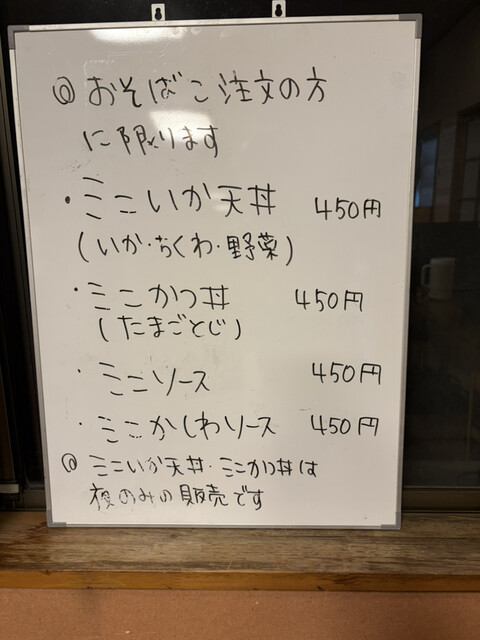 ◎ おそばご注文の方
に限ります
・ミニいか天丼 450円
(いか・ちくわ・野菜)
・ミニかつ丼 450円
(たまごとじ)
・ミニソース 450円
・ミニかしわソース 450円
◎ ミニいか天丼・ミニかつ丼は
夜のみの販売です